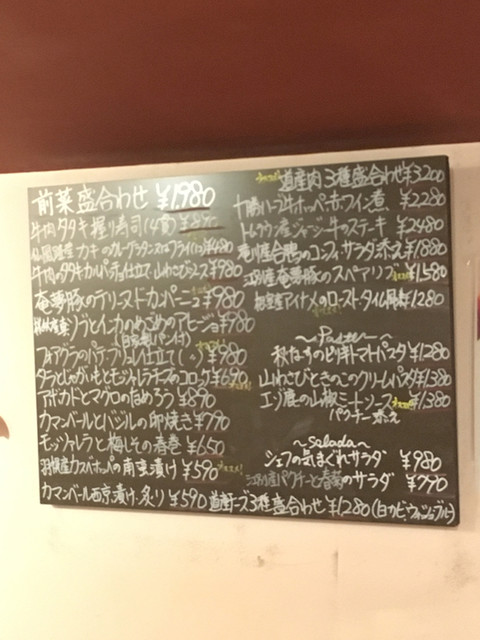 前菜盛合わせ ¥1,980
牛肉タタキ握り寿司
カキのカレーグラタン又はフライ ¥480
牛肉のタタキカルパッチョ仕立て 山わさびソース ¥980
奄夢豚のテリーヌドカンパーニュ ¥980
ゾとイカのめこのアヒージョ ¥980
(自家製パン付)
フォアグラのパテ ブリュレ仕立て ¥980
タラとじゃがいもとモッツァレラチーズのコロッケ ¥690
アボカドとマグロのためろう ¥890
カマンベールとバジルの卵焼き ¥790
モッツァレラと梅しその春巻 ¥650
羽幌産カズバナッパの南京漬け ¥590
カマンベール西京漬け 炙り ¥590
道産肉 3種盛合わせ ¥3200
十勝ハーブ牛ホッペ 赤ワイン煮 ¥2,280
トムラウシ産ジャージー牛のステーキ ¥2480
滝川産合鴨のコンフィ サラダ添え ¥1,880
江別産奄夢豚のスペアリブ ¥1,580
アイナメのロースト タイム風味 ¥1280
~Pasta~
秋なすのピリ辛トマトパスタ ¥1,280
山わさびときのこのクリームパスタ ¥1,380
エゾ鹿の山椒ミートソース ¥1,380
パクチー添え
~Salada~
シェフの気まぐれサラダ ¥980
江別産パクチーと春菊のサラダ ¥790
道産チーズ3種盛合わせ ¥1280 (白カビ、ウォッシュ、ブルー)